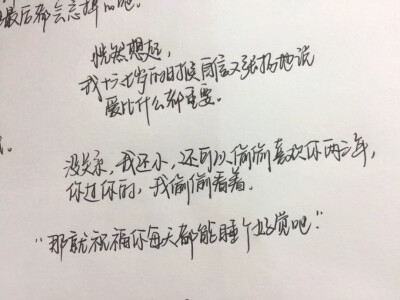 最后都会忘掉的吧。
恍然想起，
我十六七岁的时候自信又张扬地说
爱比什么都重要。
没关系，我还小，还可以偷偷喜欢你两三年，
你过你的，我偷偷看着。
"那就祝福你每天都能睡个好觉吧."